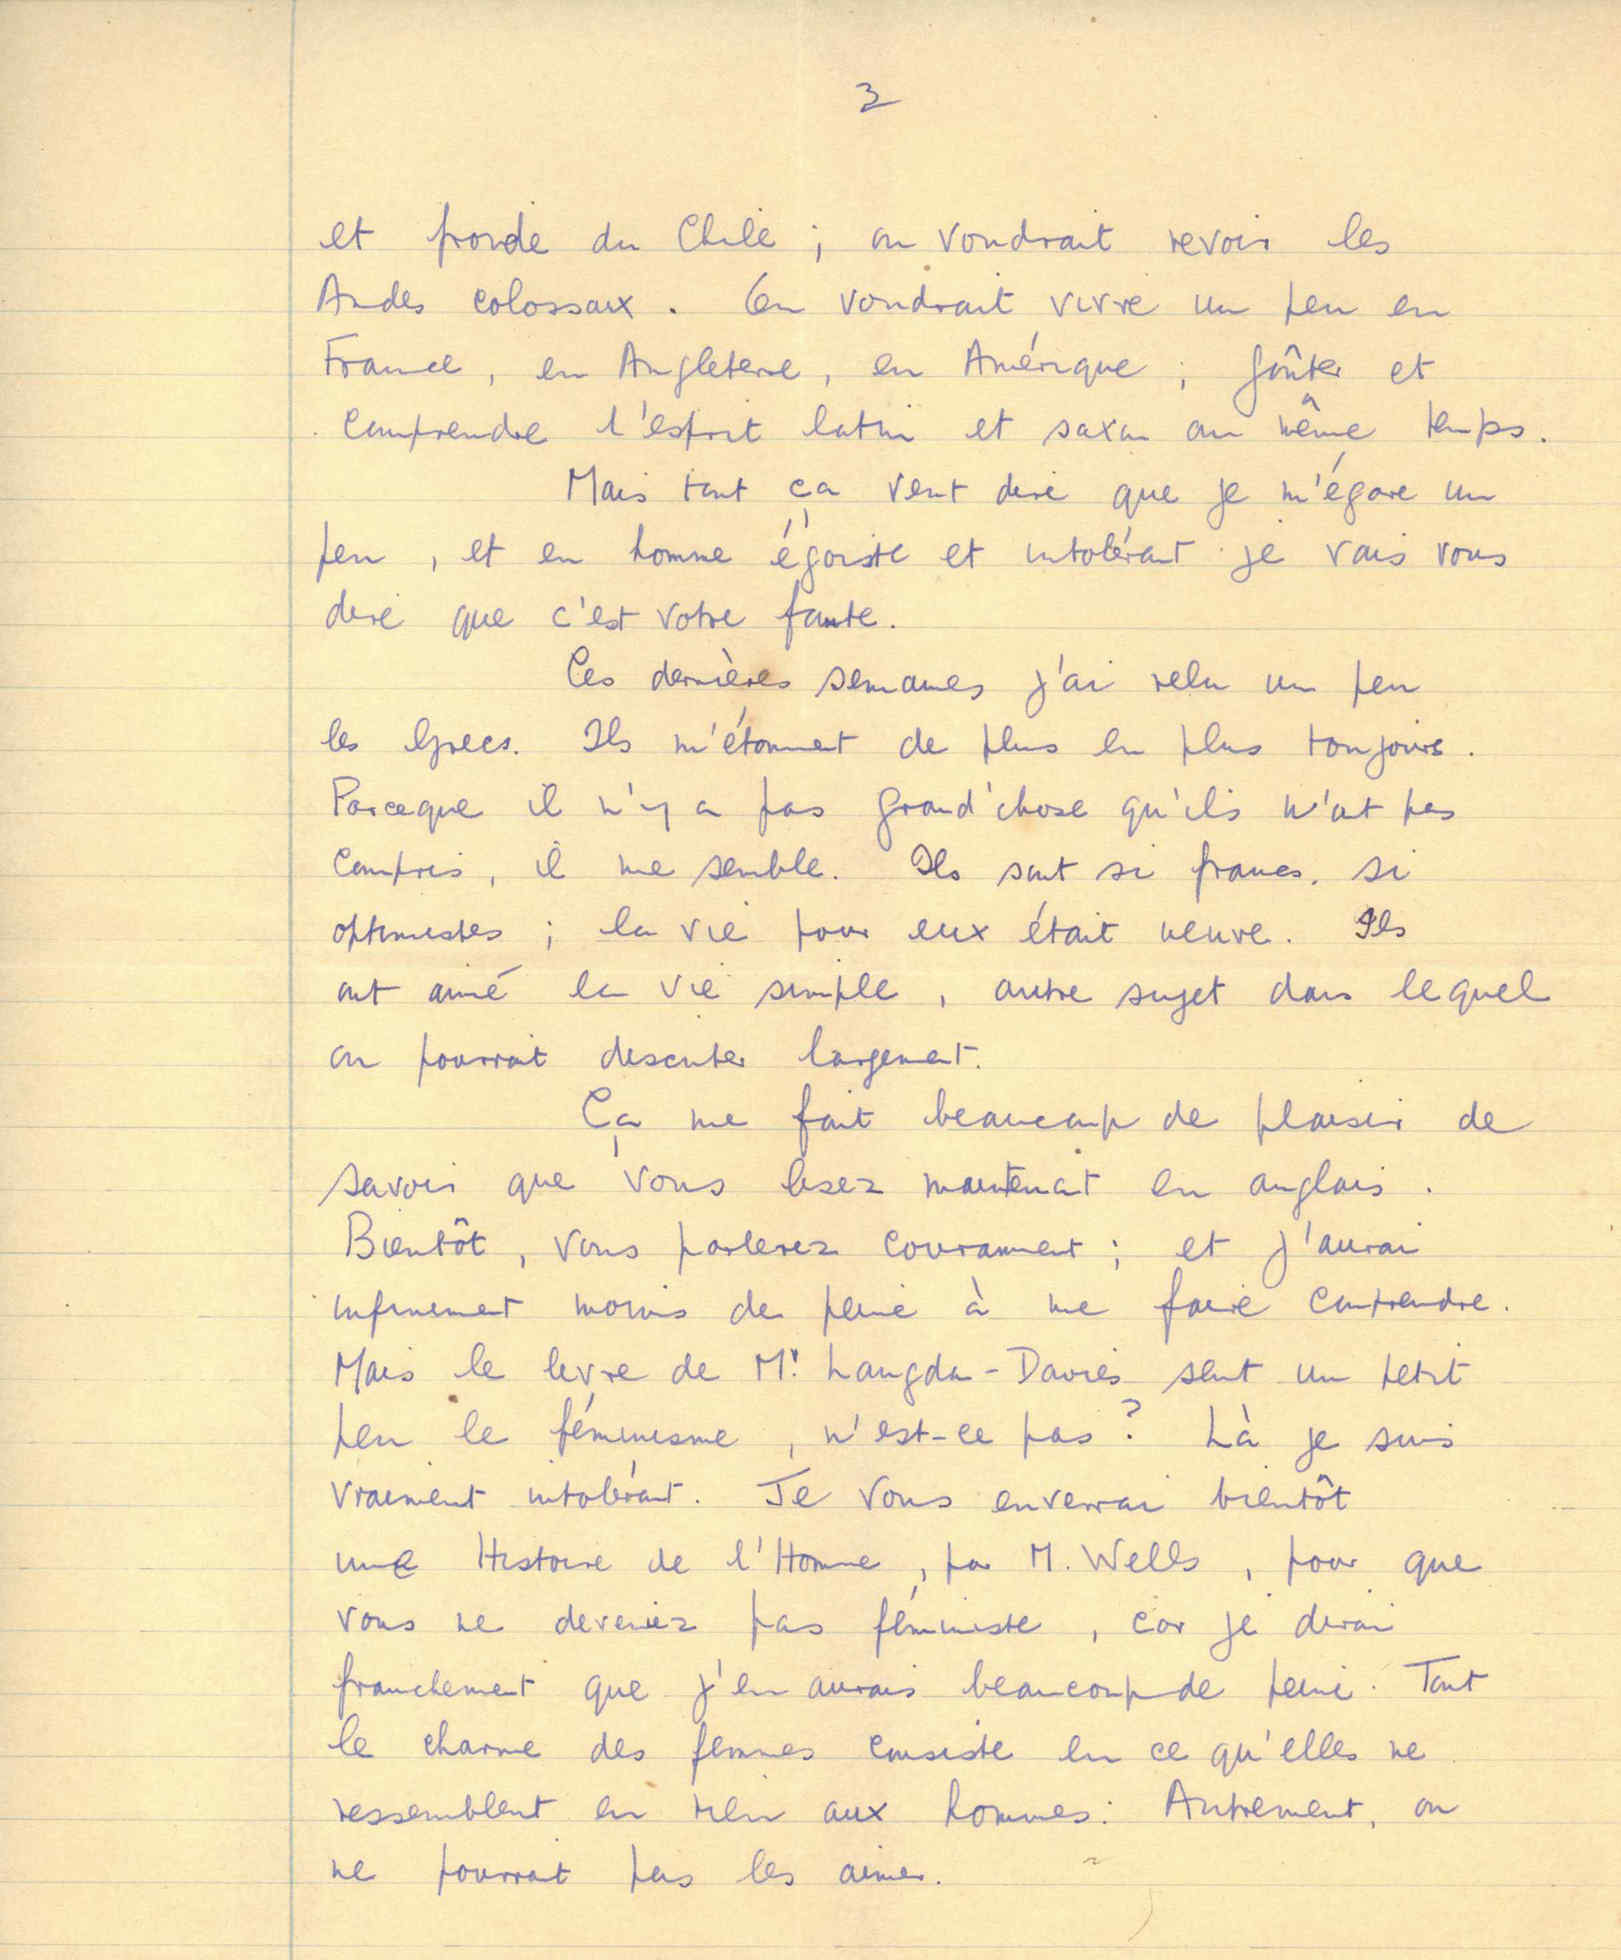 3
et froide du Chile ; on voudrait revoir les
Andes colossaux. On voudrait vivre un peu en
France, en Angleterre, en Amérique ; goûter et
comprendre l'esprit latin et saxon au même temps.
Mais tout ça veut dire que je m'égare un
peu, et en homme égoiste et intolérant je vais vous
dire que c'est votre faute.
Ces dernières semaines j'ai relu un peu
les Grecs. Ils m'étonnent de plus en plus toujours.
Parceque il n'y a pas grand'chose qu'ils n'ont pas
compris, il me semble. Ils sont si francs, si
optimistes ; la vie pour eux était neuve. Ils
ont aimé la vie simple, autre sujet dans lequel
on pourrait discuter largement.
Ça me fait beaucoup de plaisir de
savoir que vous lisez maintenant en anglais.
Bientôt, vous parlerez couramment ; et j'aurai
infiniment moins de peine à me faire comprendre.
Mais le livre de Mr. Langdon-Davies sent un petit
peu le féminisme, n'est-ce pas ? Là je suis
vraiment intolérant. Je vous enverrai bientôt
une Histoire de l'Homme, par M. Wells, pour que
vous ne deveniez pas féministe, car je dirai
franchement que j'en aurais beaucoup de peine. Tout
le charme des femmes consiste en ce qu'elles ne
ressemblent en rien aux hommes. Autrement, on
ne pourrait pas les aimer.